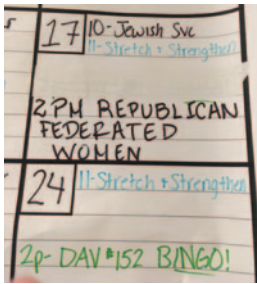 17 10-Jewish Svc
11-Stretch + Strengthen
2PM REPUBLICAN
FEDERATED
WOMEN
24 11-Stretch + Strengthen
2p- DAV #152 BINGO!